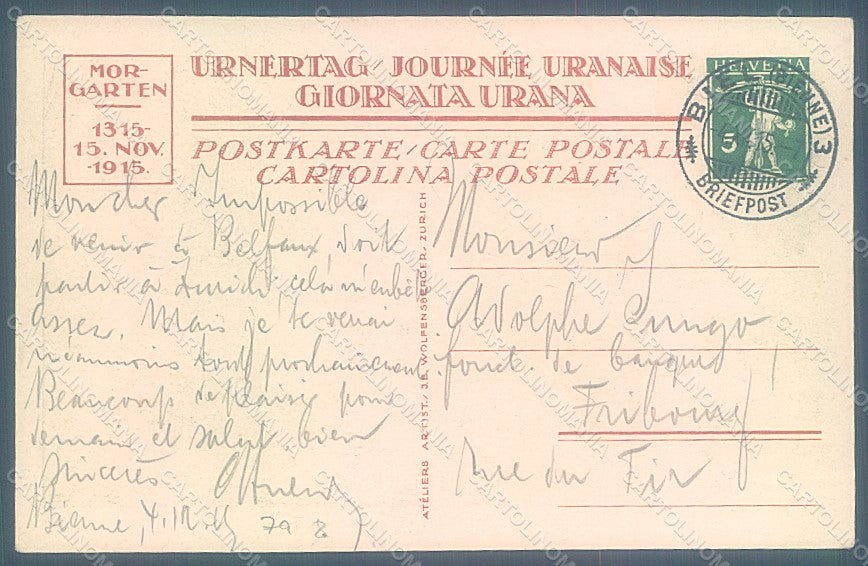 MOR-
GARTEN
1315-
15. NOV.
-1915.
URNERTAG / JOURNÉE URANAISE
GIORNATA URANA
POSTKARTE / CARTE POSTALE
CARTOLINA POSTALE
HELVETIA
5
BIEL (BIENNE) 3
BRIEFPOST
Mon cher Impossible
de venir à Belfaux, doit
partir à Zurich cela m'embête
assez. Mais je te verrai
néanmoins tout prochainement.
Beaucoup de plaisir pour
demain et salut bien
sincères
Bienne, 4.
79 8
ATELIERS ARTIST. / J.E. WOLFENSBERGER, ZURICH
Monsieur
Adolphe
fonct. de banque
Fribourg
rue du Tir
CARTOLINOMANIA